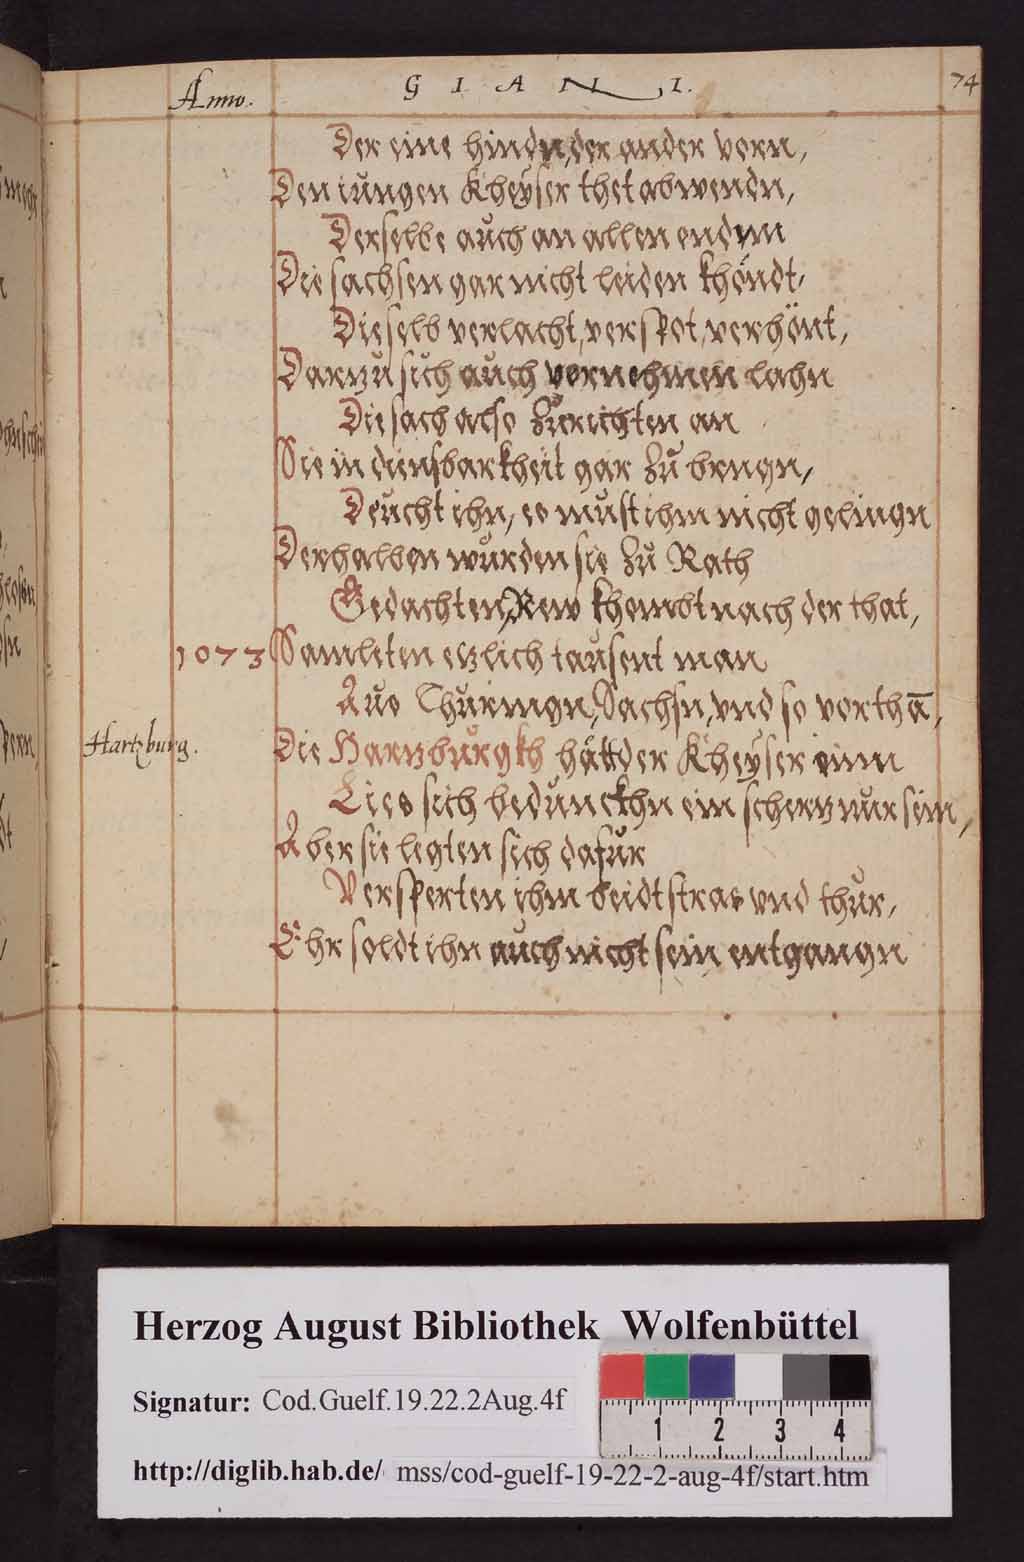 Anno.
G I A N I.
74
Der eine hindn, der ander vorn,
Den iungen Kheyser thet abwendn,
Derselbe auch an allen endnn
Die sachsen gar nicht leiden khöndt,
Dieselb verlacht, verspot, verhönt,
Darzu sich auch vornehmen lahn
Die sach also zurichten an
Sie in diensbarkheit gar zu brngn,
Deucht ihn, es must ihm nicht gelingn
Derhalben wurden sie zu Rath
Gedachten, Rew khombt nach der that,
1073
Samleten etzlich tausent man
Aus Thuringn, Sachsn, vnd so vorthā,
Hartzburg.
Die Hartzburgkh hätt der Kheyser inn
Lies sich bedunckhn ein schertz nur sein,
Aber sie legten sich dafür
Versperten ihm beidt stras vnd thur,
Ehr soldt ihn auch nicht sein entgangn
Herzog August Bibliothek Wolfenbüttel
Signatur: Cod.Guelf.19.22.2Aug.4f
1 2 3 4
http://diglib.hab.de/ mss/cod-guelf-19-22-2-aug-4f/start.htm